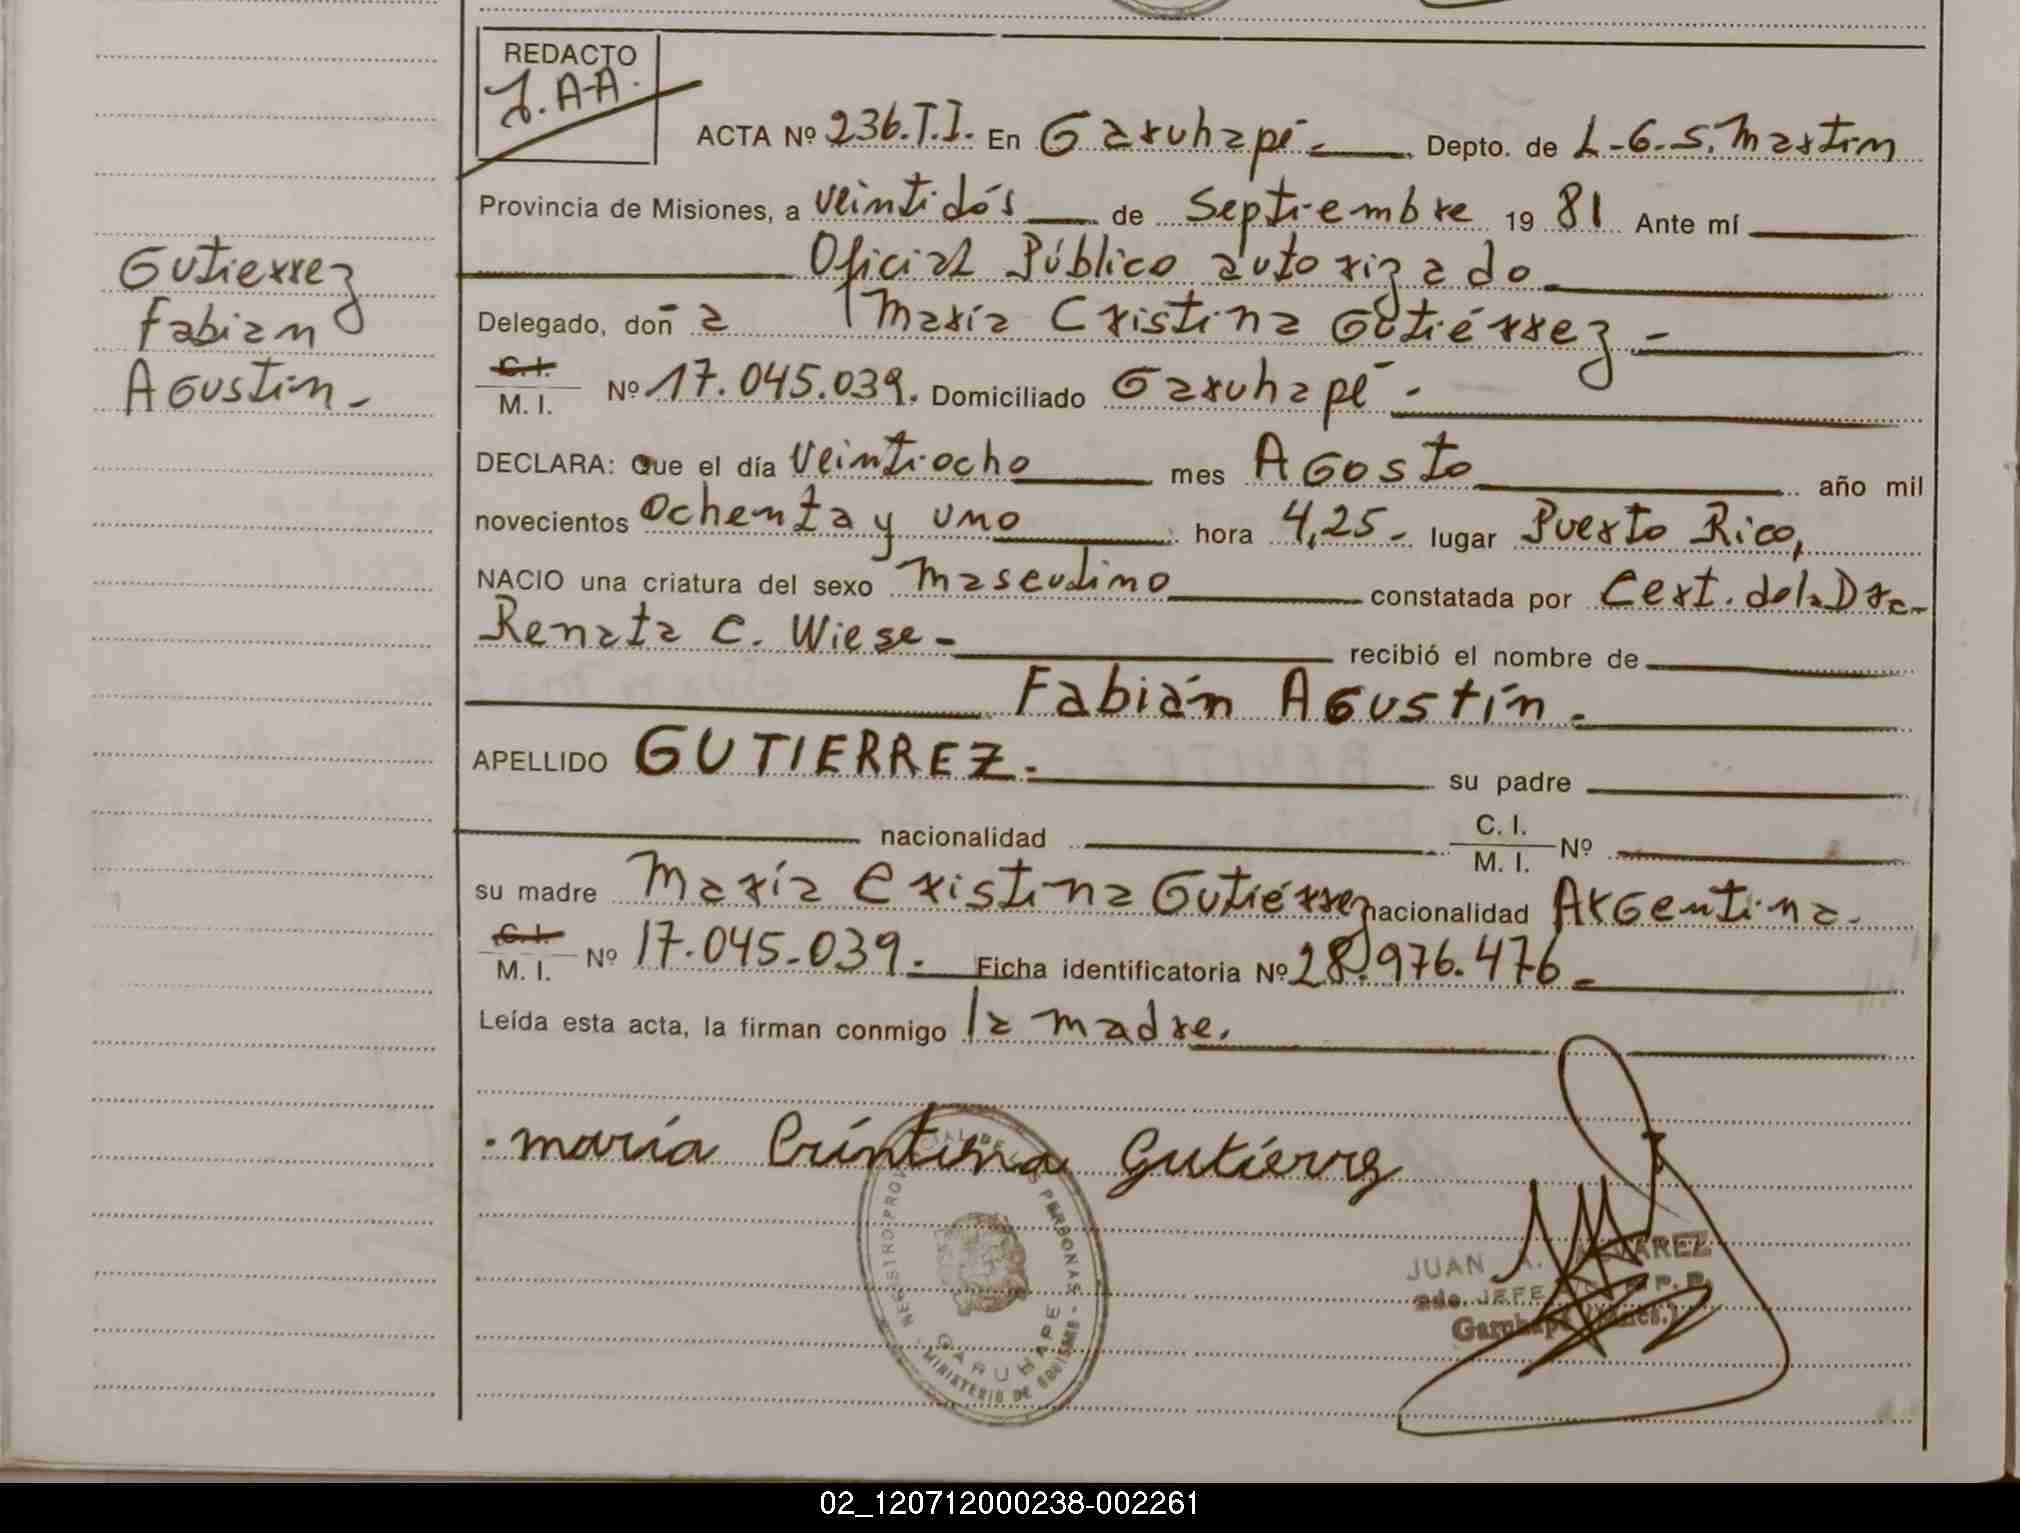 REDACTO
J.A.A.
ACTA Nº 236.T.I. En Garuhapé Depto. de L-G-S. Martin
Provincia de Misiones, a veintidós de Septiembre 1981 Ante mí
Oficial Público autorizado
Delegado, doña María Cristina Gutiérrez -
C.I. M. I. Nº 17.045.039. Domiciliado Garuhapé -
DECLARA: Que el día Veintiocho mes Agosto año mil
novecientos ochenta y uno hora 4,25 - lugar Puerto Rico,
NACIO una criatura del sexo masculino constatada por Cert. de la Dra.
Renata C. Wiese - recibió el nombre de
Fabián Agustín -
APELLIDO GUTIERREZ. su padre
nacionalidad C. I. M. I. Nº
su madre María Cristina Gutiérrez nacionalidad Argentina -
C.I. M. I. Nº 17.045.039. Ficha identificatoria Nº 28.976.476 -
Leída esta acta, la firman conmigo la madre.
Gutierrez
Fabian
Agustin -
maría Cristina Gutiérrez
PERSONAS
GARUHAPE
MINISTERIO DE GOBIERNO
JUAN A. ALVAREZ
2do. JEFE
Garuhapé
02_120712000238-002261